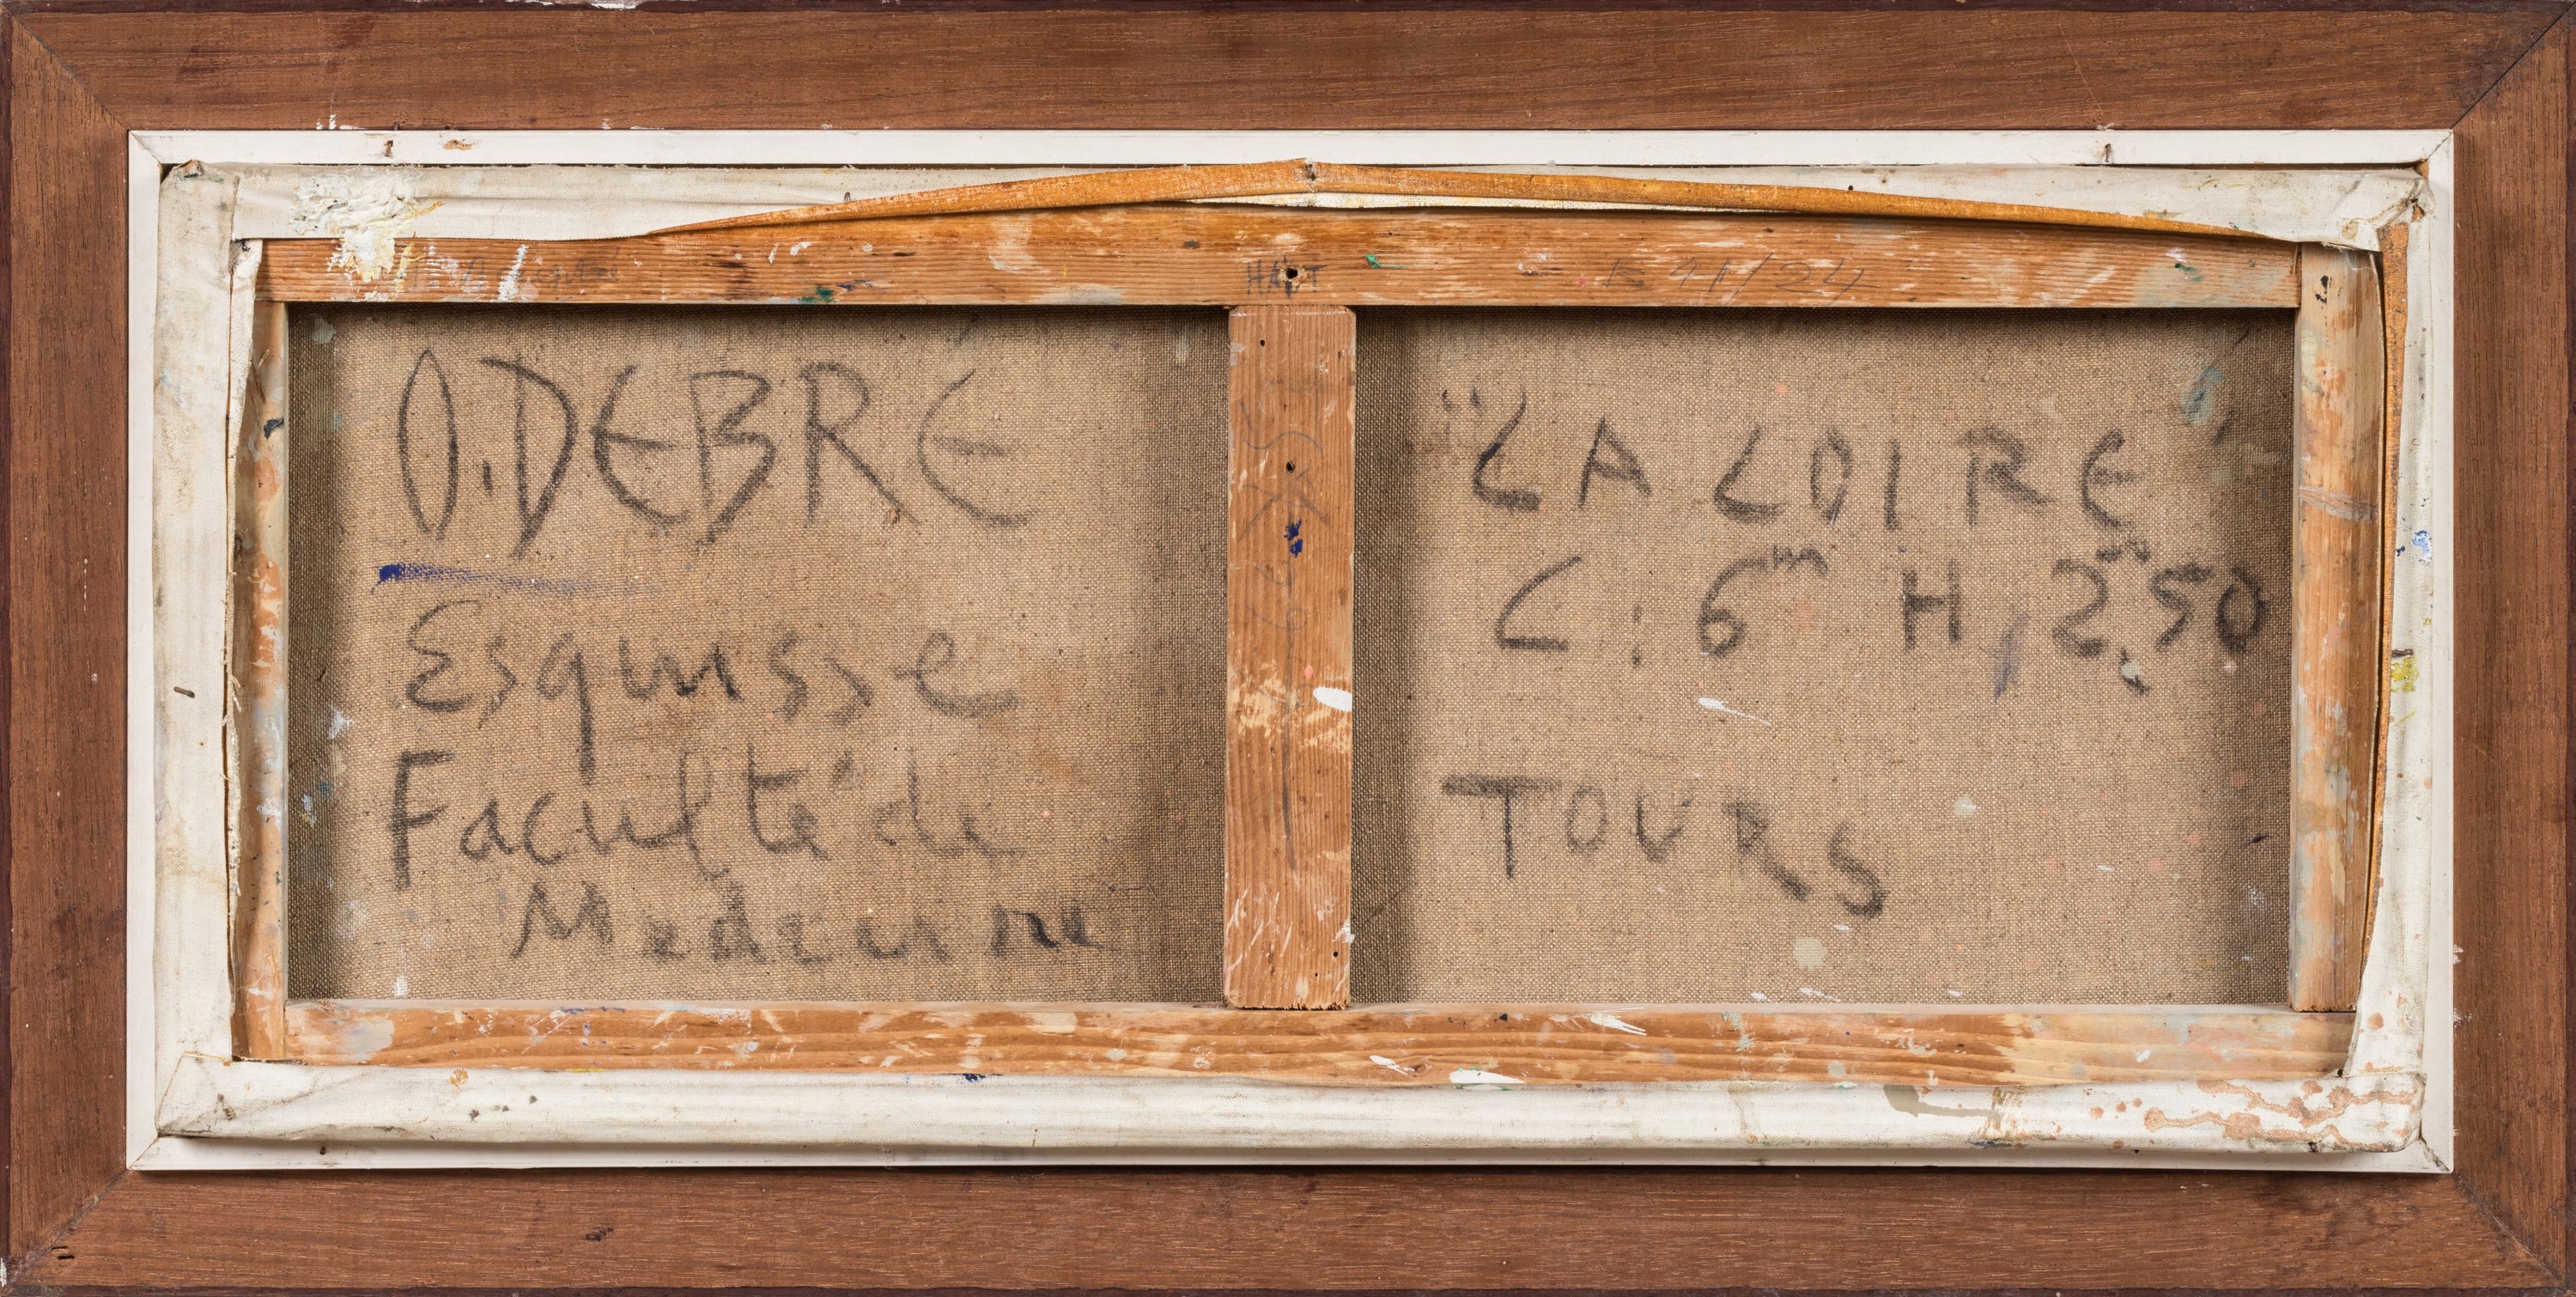 HAUT
O.DEBRE
Esquisse
Faculté de
Medecine
"LA LOIRE"
L : 6m H, 2m,50
TOURS